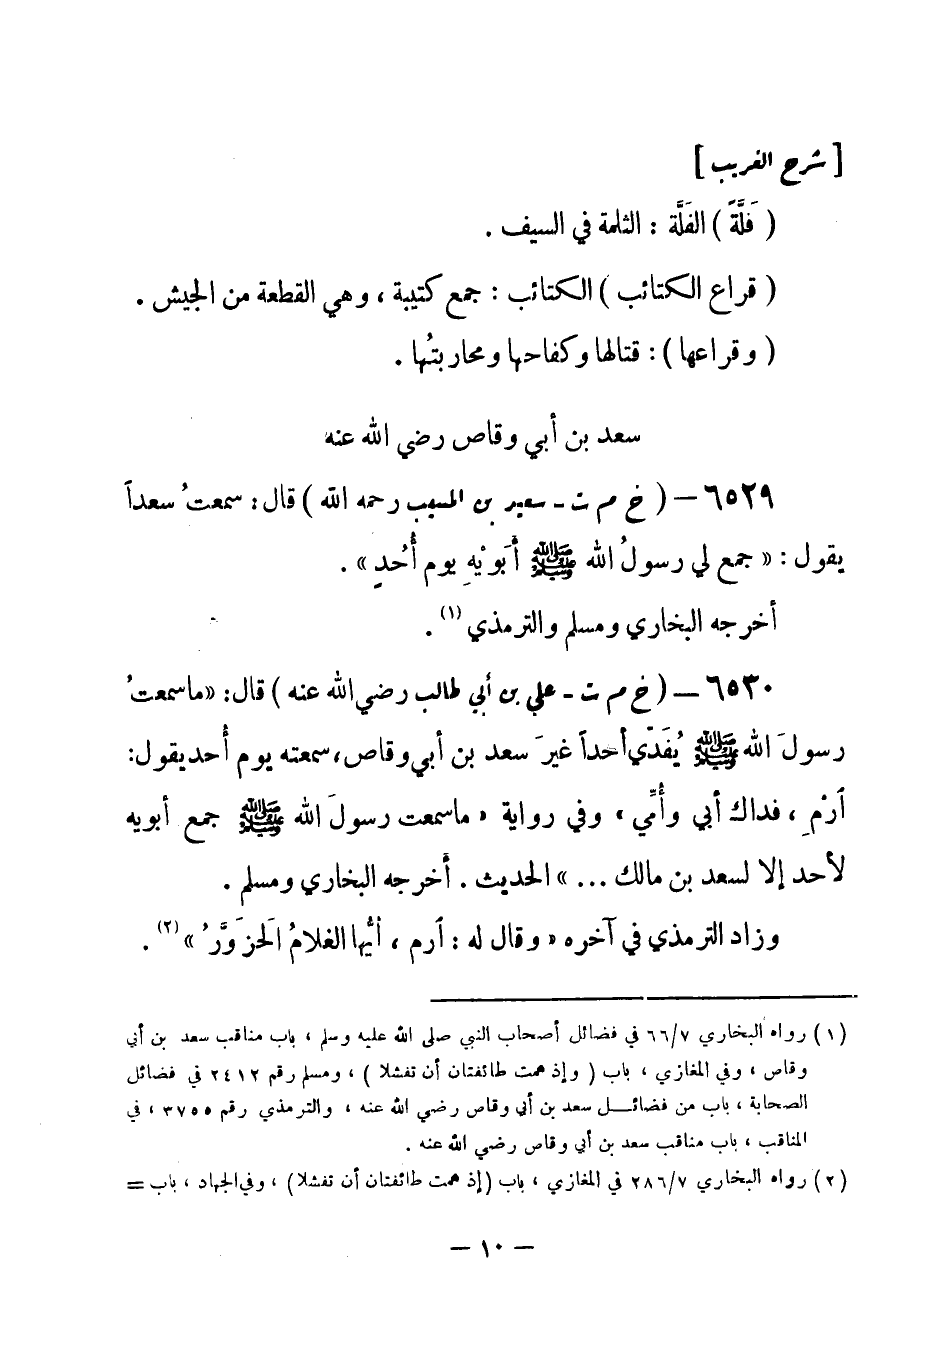 [ شرح الغريب ]
( فَلَّةً ) الفَلَّة : الثلمة في السيف .
( قراع الكتائب ) الكتائب : جمع كتيبة ، وهي القطعة من الجيش .
( وقراعها ) : قتالها وكفاحها ومحاربتُها .
سعد بن أبي وقاص رضي الله عنه
٦٥٢٩ – ( خ م ت - سعيد بن المسيب رحمه الله ) قال : سمعتُ سعداً
يقول : « جمع لي رسولُ الله ﷺ أَبويْهِ يوم أُحُدٍ » .
أخرجه البخاري ومسلم والترمذي (١) .
٦٥٣٠ – ( خ م ت - علي بن أبي طالب رضي الله عنه ) قال : « ما سمعتُ
رسولَ الله ﷺ يُفَدِّي أحداً غيرَ سعد بن أبي وقاص ، سمعته يوم أُحد يقول :
ارْمِ ، فداك أبي وأُمِّي » وفي رواية « ما سمعت رسولَ الله ﷺ جمع أبويه
لأحد إلا لسعد بن مالك ... » الحديث . أخرجه البخاري ومسلم .
وزاد الترمذي في آخره « وقال له : ارم ، أيُّها الغلامُ الحَزَوَّرُ » (٢) .
(١) رواه البخاري ٧/٦٦ في فضائل أصحاب النبي صلى الله عليه وسلم ، باب مناقب سعد بن أبي
وقاص ، وفي المغازي ، باب ( وإذ همت طائفتان أن تفشلا ) ، ومسلم رقم ٢٤١٢ في فضائل
الصحابة ، باب من فضائل سعد بن أبي وقاص رضي الله عنه ، والترمذي رقم ٣٧٥٥ ، في
المناقب ، باب مناقب سعد بن أبي وقاص رضي الله عنه .
(٢) رواه البخاري ٧/٢٨٦ في المغازي ، باب (إذ همت طائفتان أن تفشلا) ، وفي الجهاد ، باب =
– ١٠ –